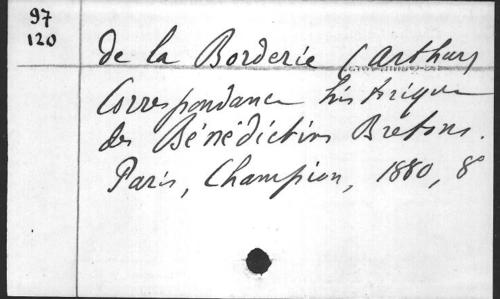 97
120
de la Borderie (Arthur)
Correspondance historique
des Bénédictins Bretons.
Paris, Champion, 1880, 8°